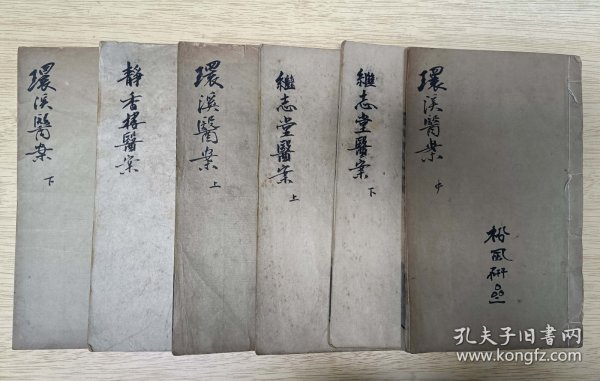 環溪醫案
下
靜香樓醫案
環溪醫案
上
繼志堂醫案
上
繼志堂醫案
下
環溪醫案
中
孔夫子旧书网
www.kongfz.com